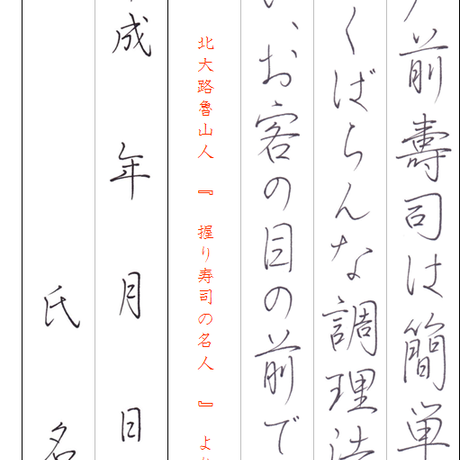 前壽司は簡単
くばらんな調理法
い、お客の目の前で
北大路魯山人『握り寿司の名人』より
成 年 月 日
氏 名